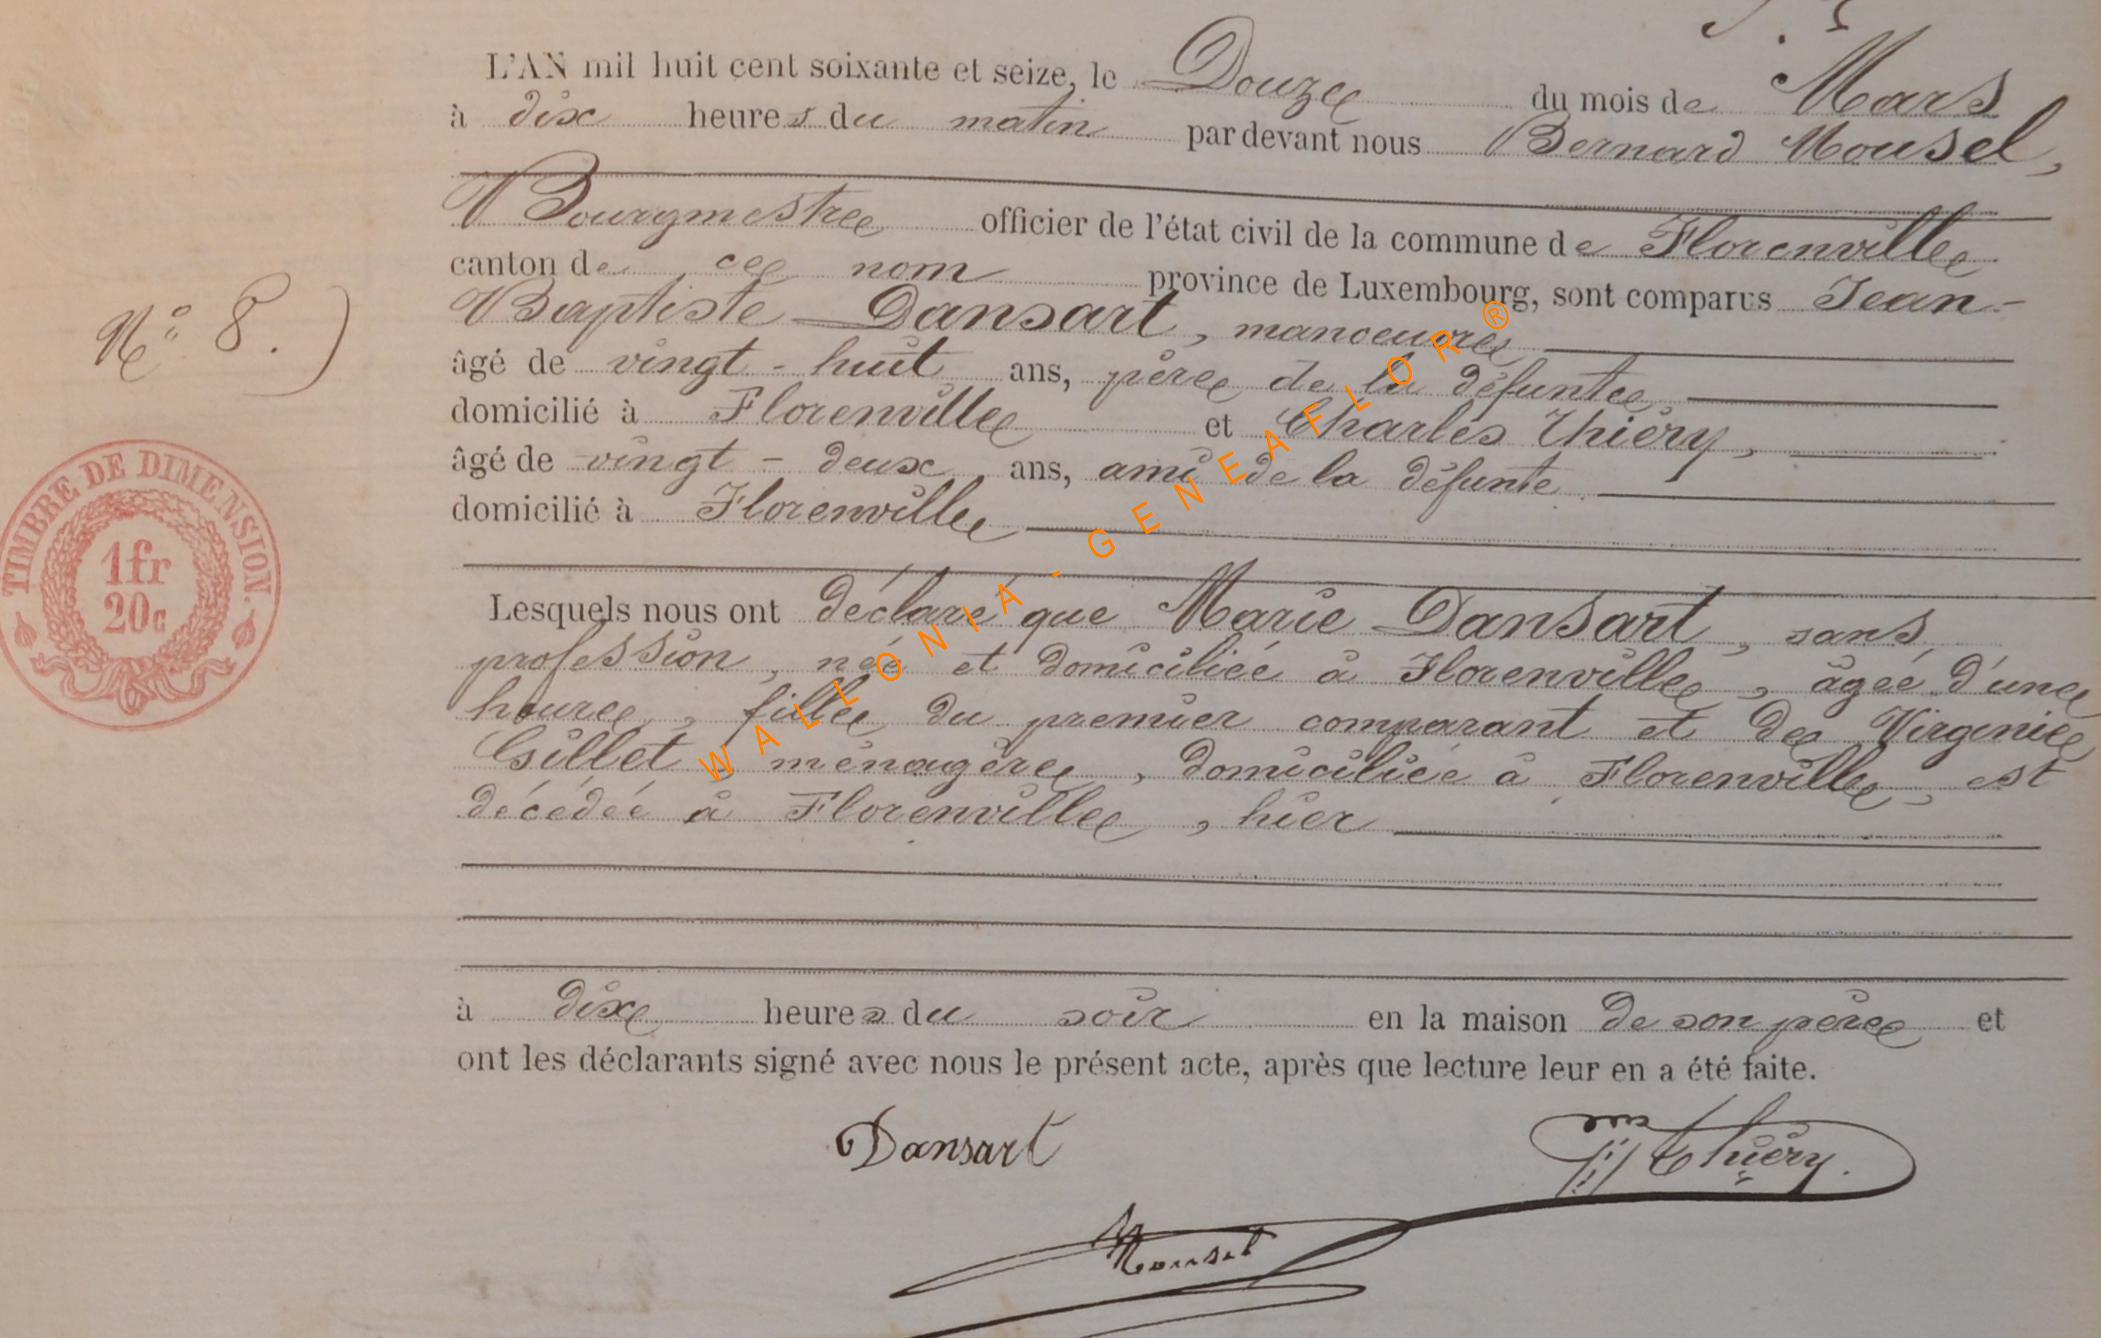 L'AN mil huit cent soixante et seize, le Douze du mois de Mars
à dix heures du matin par devant nous Bernard Mousel,
Bourgmestre officier de l'état civil de la commune de Florenville
canton de ce nom province de Luxembourg, sont comparus Jean-
Baptiste Dansart, manoeuvre
âgé de vingt-huit ans, père de la défunte
domicilié à Florenville et Charles Thiéry,
âgé de vingt-deux ans, ami de la défunte
domicilié à Florenville
Lesquels nous ont déclaré que Marie Dansart, sans
profession, née et domiciliée à Florenville, âgée d'une
heure, fille du premier comparant et de Virginie
Gillet, ménagère, domiciliée à Florenville, est
décédée à Florenville, hier
à dix heures du soir en la maison de son père et
ont les déclarants signé avec nous le présent acte, après que lecture leur en a été faite.
Dansart Thiéry.
Mousel
N° 8.)
TIMBRE DE DIMENSION.
1fr
20c
WALLONIA-GENEAFLOR®